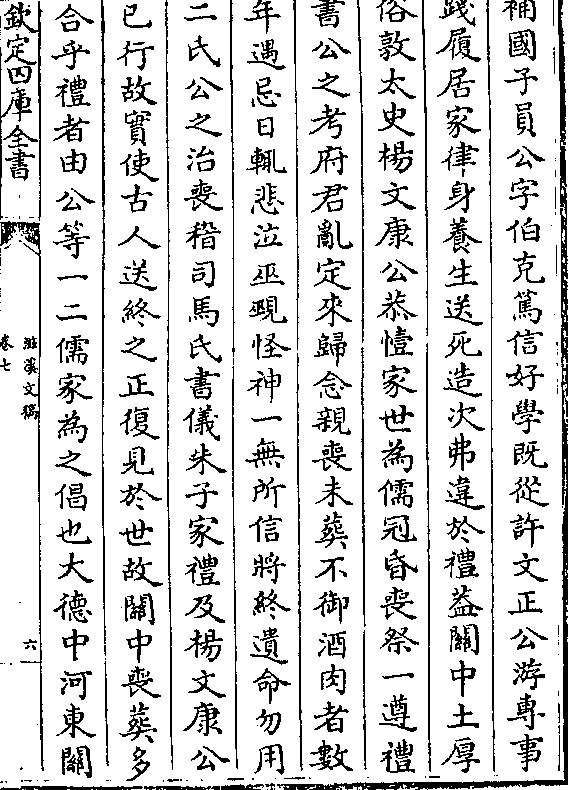 補國子員公字伯克篤信好學既從許文正公游專事
踐履居家律身養生送死造次弗違於禮葢闗中土厚
俗敦太史楊文康公恭懿家世為儒冠昏喪祭一遵禮
書公之考府君亂定來歸念親喪未葬不御酒肉者數
年遇忌日輒悲泣巫覡怪神一無所信將終遺命勿用
二氏公之治喪稽司馬氏書儀朱子家禮及楊文康公
已行故實使古人送終之正復見於世故闗中喪葬多
合乎禮者由公等一二儒家為之倡也大德中河東闗
欽定四庫全書
滋溪文稿
卷七
六